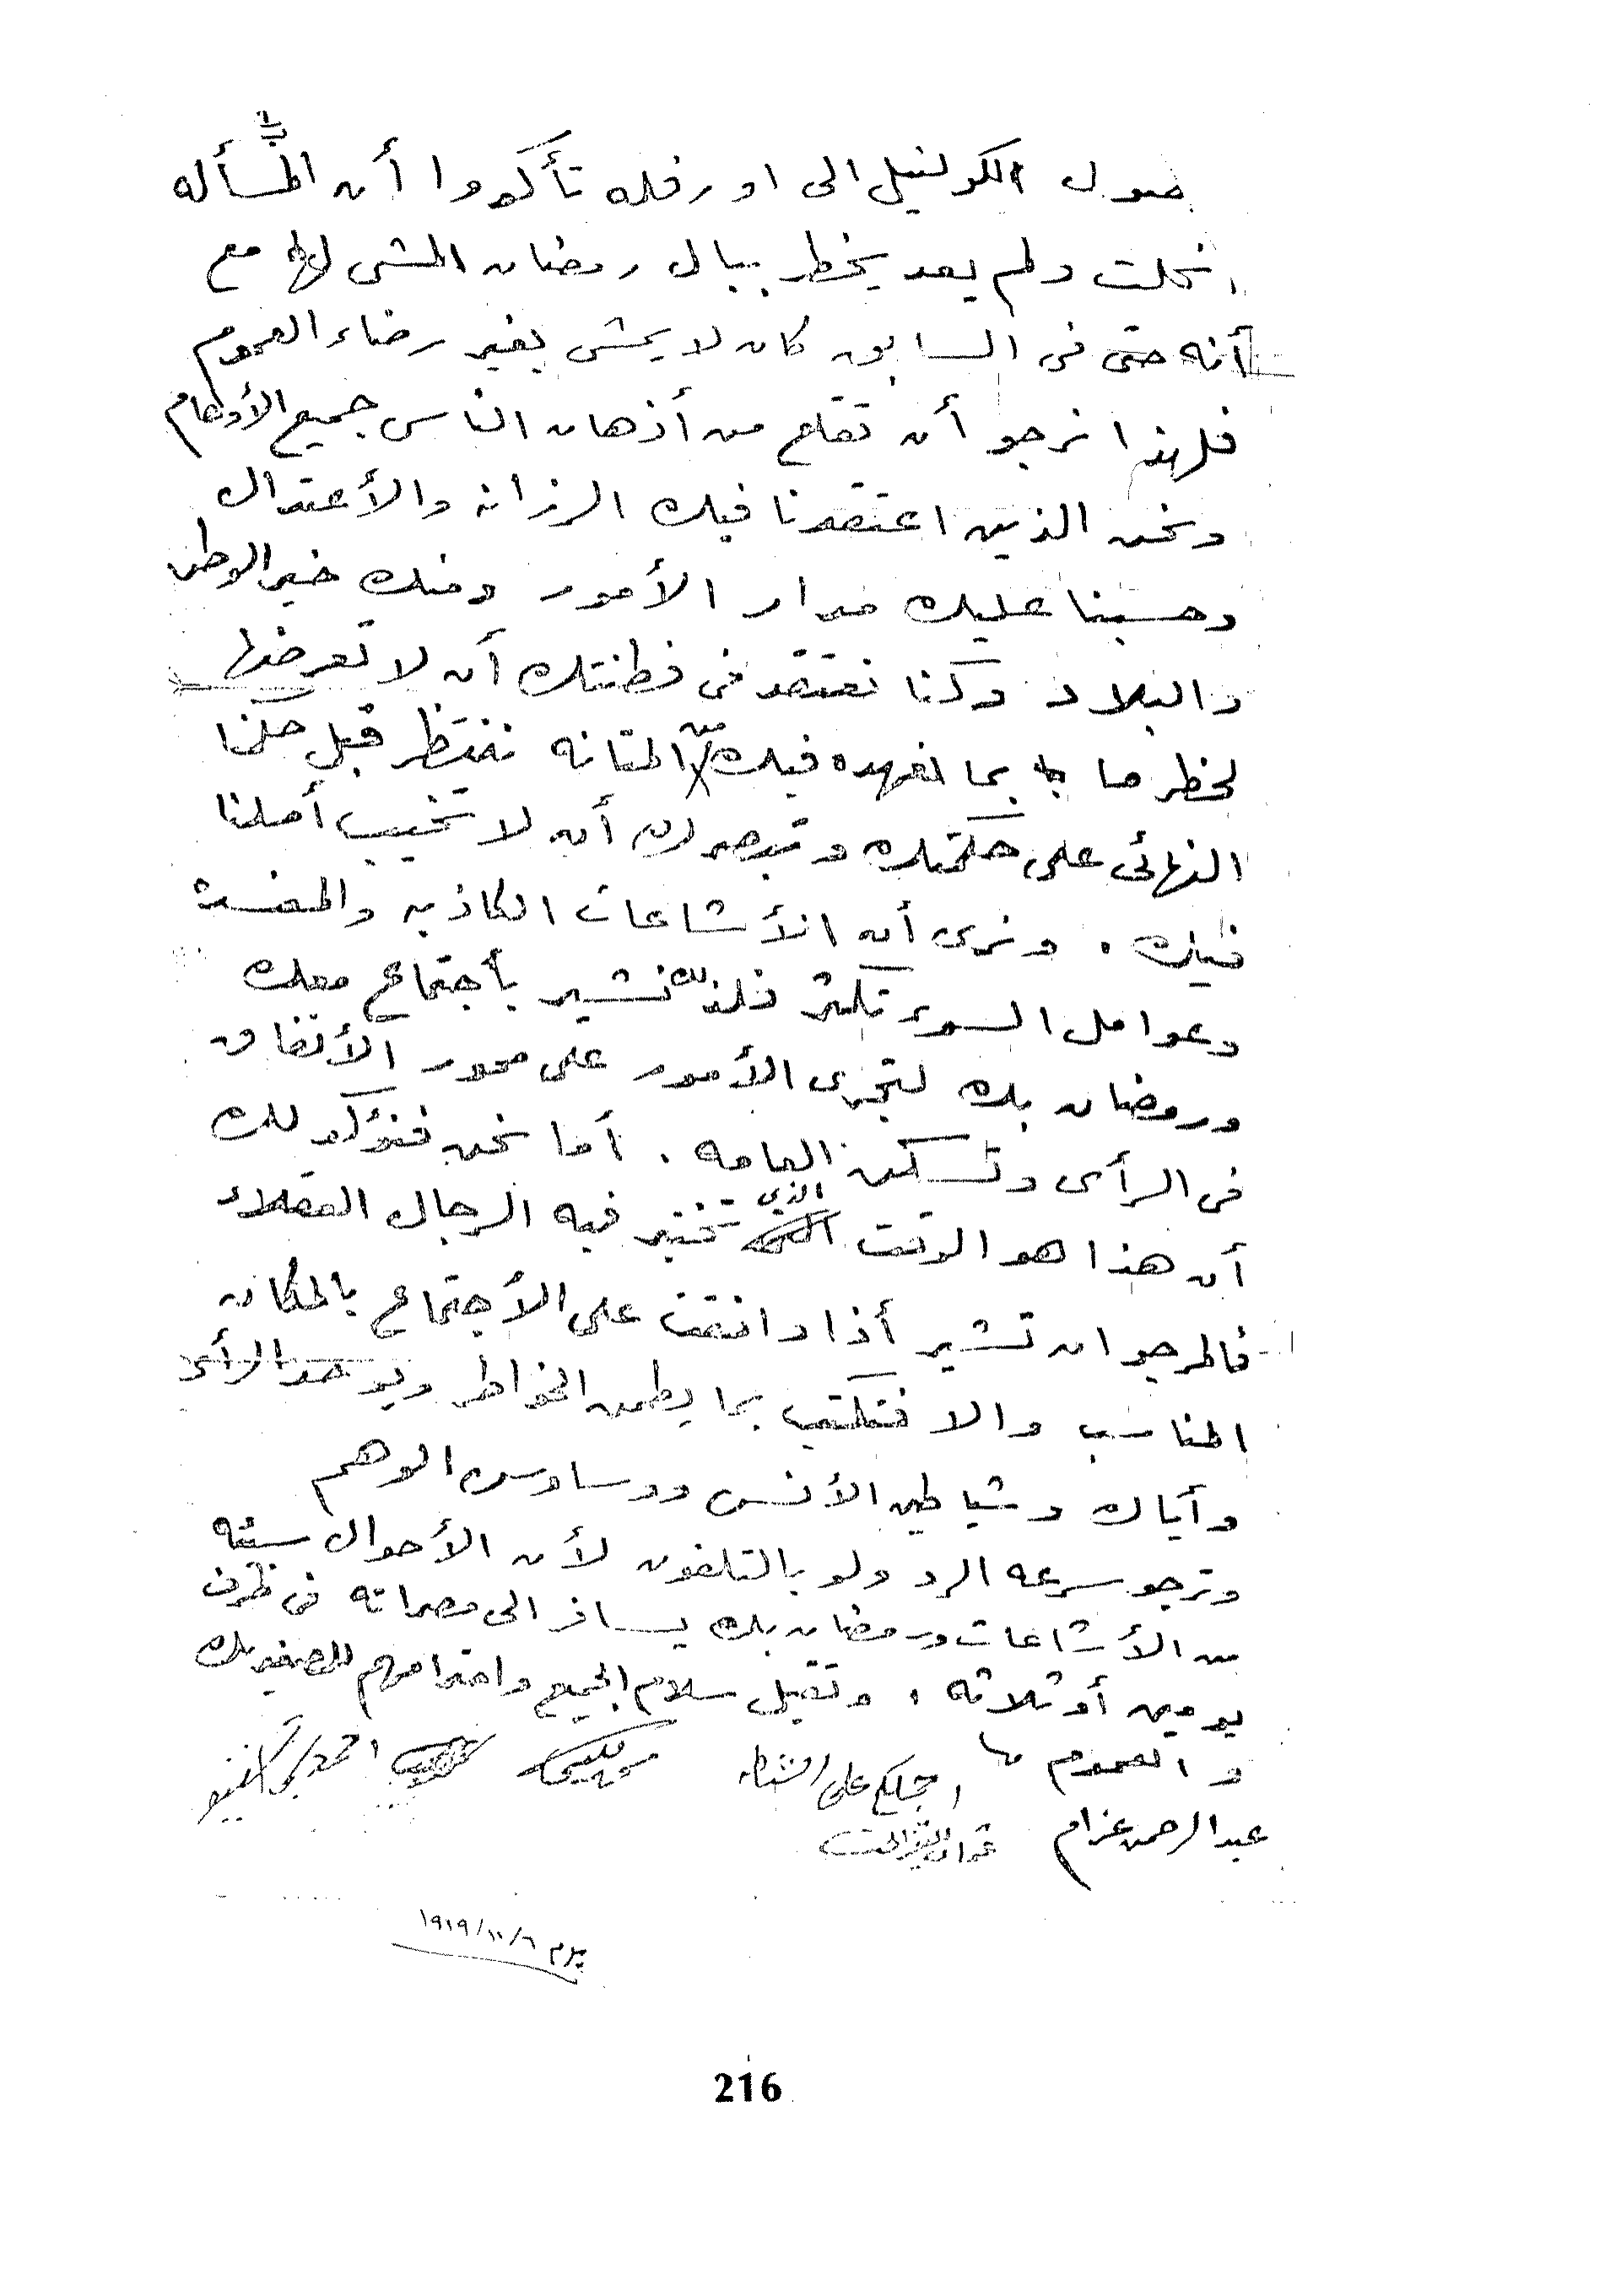 صول الكولنيل الى اورفله تأكدوا أن المسأله
انحلت ولم يعد يخطر ببال رمضان المشى لها مع
أنه حتى فى السابق كان لا يمشى بغير رضاء العموم
فلهذا نرجو أن تقلع من أذهان الناس جميع الأوهام
ونحن الذين اعتقدنا فيك الرزانه والأعتدال
وحسبنا عليك مدار الأمور ومنك خير الوطن
والبلاد وكنا نعتقد فى فطنتك أن لا تعرضها
لخطر ما بما نعهده فيك من المتانه ننتظر قبل حكمنا
النهائى على حكمتك وتبصرك أن لا تخيب أملنا
فيك . ونرى أن الأشاعات الكاذبه والمفسدة
وعوامل السوء تكثر فلذلك نشير بأجتماع معك
ورمضان بك لتجرى الأمور على محور الأتفاق
فى الرأى وتسكن العامه . أما نحن فنؤكد لك
أن هذا هو الوقت الذى تختبر فيه الرجال العقلاء
فالمرجو ان تشير أذا وافقت على الأجتماع بالمكان
المناسب والا فتكتب بما يطمن الخواطر ويوحد الرأى
وأياك وشياطين الأنس ووساوس الوهم
ونرجو سرعه الرد ولو بالتلفون لأن الأحوال سيئه
من الأشاعات ورمضان بك يسافر الى مصراته فى ظرف
يومين أو ثلاثه . وتقبل سلام الجميع واحترامهم للصغير بك
والعموم
على الشنطه
عبد الرحمن عزام
يوم ١٩١٩/١٠/٦
216